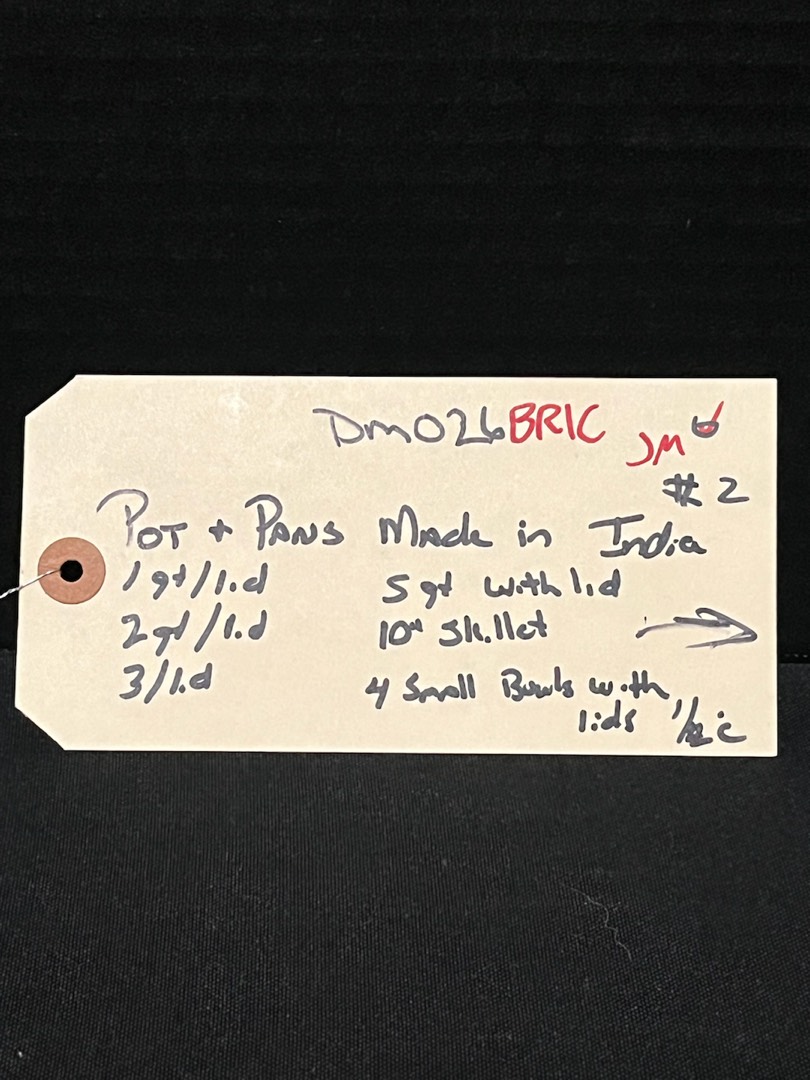 Dm026BRIC JM
#2
Pot + Pans Made in India
1 qt/lid 5 qt with lid
2 qt/lid 10" Skillet
3/lid 4 Small Bowls with
lids